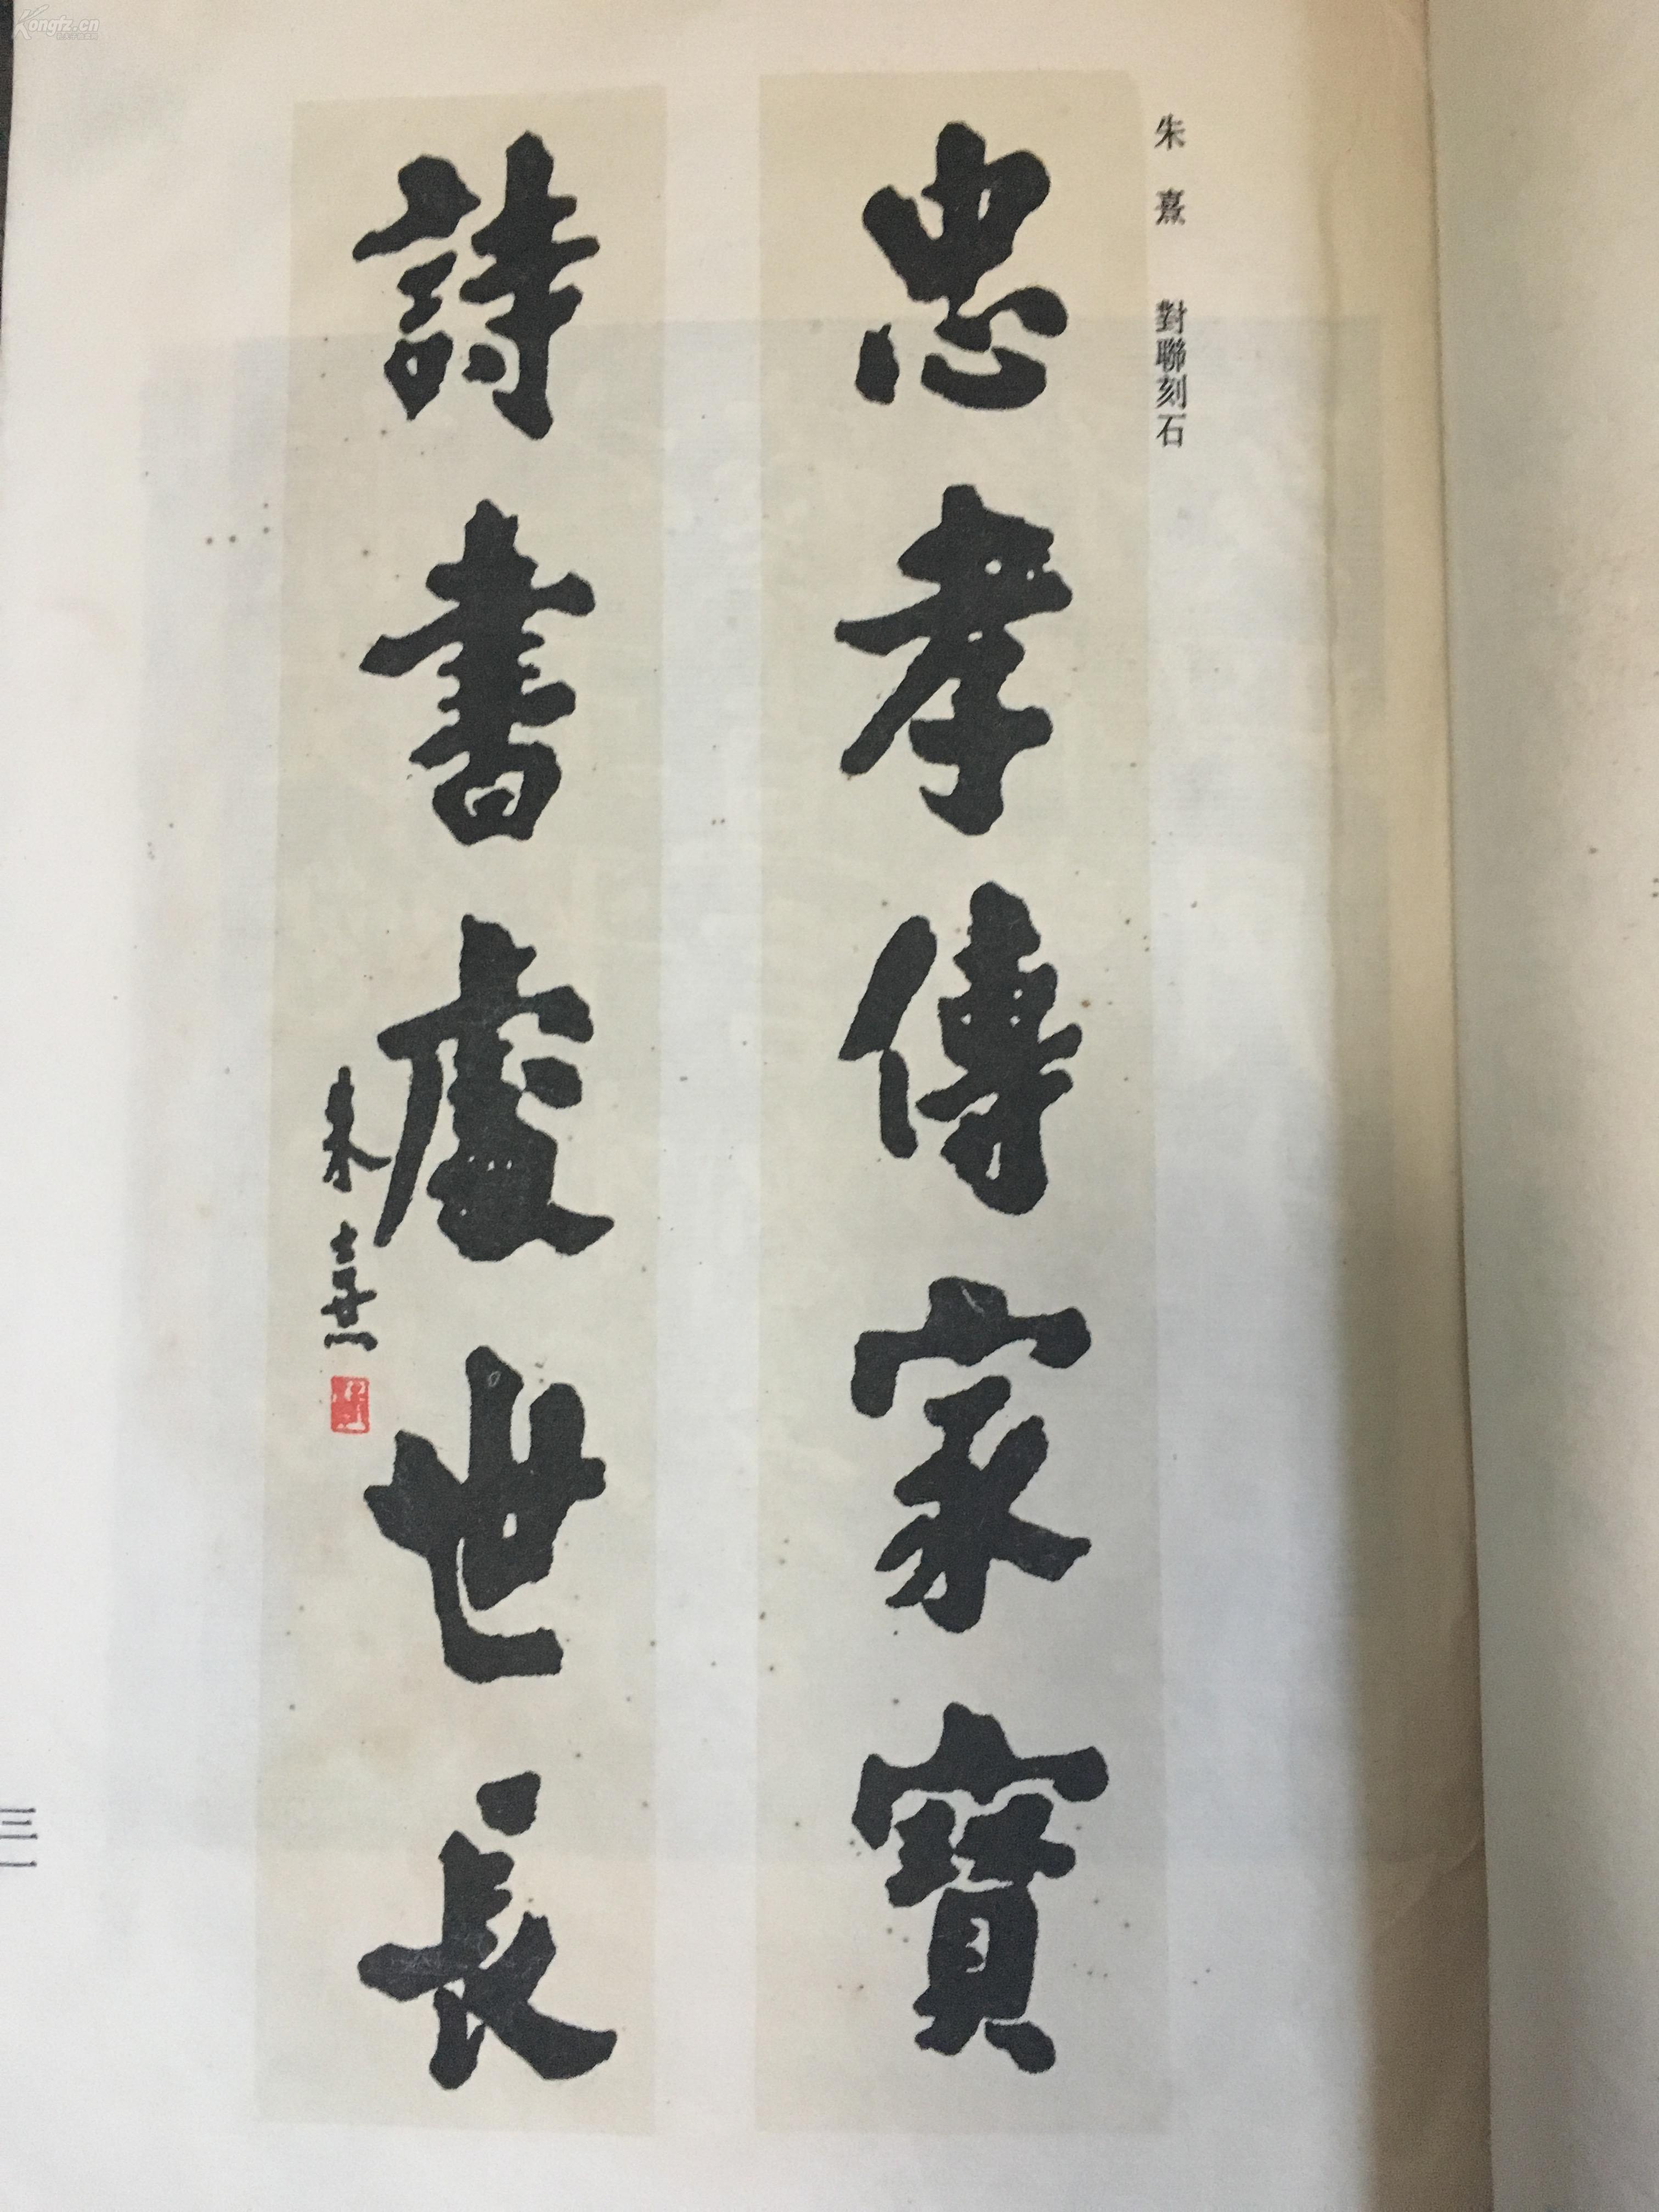 朱熹 對聯刻石
忠孝傳家寶
詩書處世長
朱熹
三一
Kongfz.cn